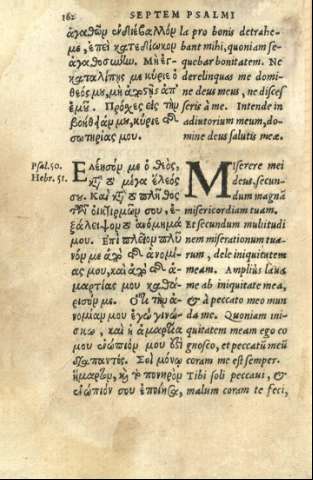 162 SEPTEM PSALMI
ἀγαθῶν ἐνδιέβαλλόν
με, ἐπεὶ κατεδίωκον
ἀγαθοσύνην. Μὴ ἐγ-
καταλίπῃς με κύριε ὁ
θεός μου, μὴ ἀποστῇς ἀπ'
ἐμοῦ. Πρόσχες εἰς τὴν
βοήθειάν μου, κύριε τῆς
σωτηρίας μου.
la pro bonis detrahe-
bant mihi, quoniam se-
quebar bonitatem. Ne
derelinquas me domi-
ne deus meus, ne disces
seris à me. Intende in
adiutorium meum, do-
mine deus salutis meæ.
Psal. 50.
Hebr. 51.
Ἐλέησόν με ὁ θεός,
κατὰ τὸ μέγα ἔλεός
σου. Καὶ κατὰ τὸ πλῆθος
τῶν οἰκτιρμῶν σου, ἐ-
ξάλειψον τὸ ἀνόμημά
μου. Ἐπὶ πλεῖον πλῦ-
νόν με ἀπὸ τῆς ἀνομί-
ας μου, καὶ ἀπὸ τῆς ἁ-
μαρτίας μου καθά-
ρισόν με. Ὅτι τὴν ἀ-
νομίαν μου ἐγὼ γινώ-
σκω, καὶ ἡ ἁμαρτία
μου ἐνώπιόν μου ἐστὶ
διαπαντός. Σοὶ μόνῳ
ἥμαρτον, καὶ τὸ πονηρὸν
ἐνώπιόν σου ἐποίησα,
Miserere mei
deus, secun-
dum magnã
misericordiam tuam.
Et secundum multitudi
nem miserationum tua-
rum, dele iniquitatem
meam. Amplius laua
me ab iniquitate mea,
& à peccato meo mun
da me. Quoniam ini-
quitatem meam ego co
gnosco, et peccatũ meũ
coram me est semper.
Tibi soli peccaui, &
malum coram te feci,